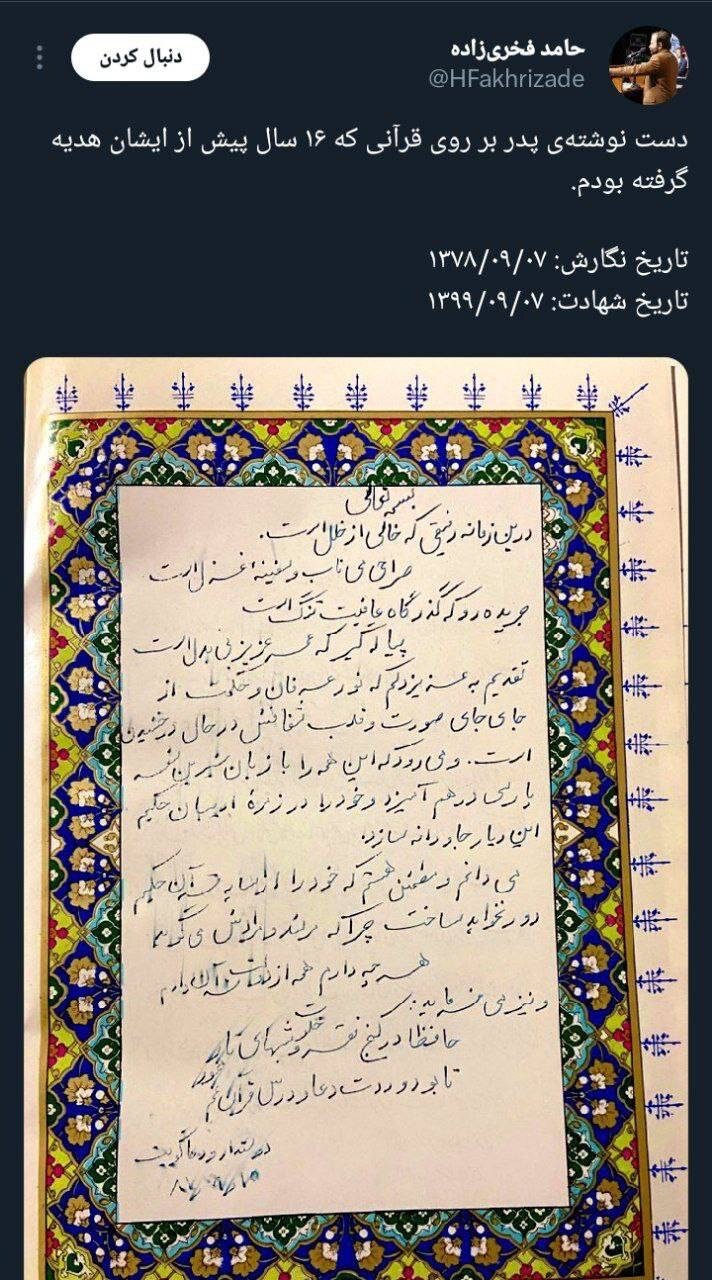 حامد فخری‌زاده
@HFakhrizade
دنبال کردن
دست نوشته‌ی پدر بر روی قرآنی که ۱۶ سال پیش از ایشان هدیه
گرفته بودم.
تاریخ نگارش: ۱۳۷۸/۰۹/۰۷
تاریخ شهادت: ۱۳۹۹/۰۹/۰۷
بسمه تعالی
درین زمانه رفیقی که خالی از خلل است.
صراحی می ناب و سفینه غزل است
جریده رو که گذرگاه عافیت تنگ است
پیاله گیر که عمر عزیز بی بدل است
تقدیم به عزیز دلم که نور عرفان و حکمت از
جای جای صورت و قلب شفافش در حال درخشیدن
است. و می رود که این همه را با زبان شیرین
پارسی در هم آمیزد و خود را در زمرهٔ ادیبان حکیم
این دیار جاودانه سازد.
می دانم و مطمئن هستم که خود را از سایه قرآن حکیم
دور نخواهد ساخت چرا که
هر چه دارم همه از دولت قرآن دارم
و نیز می فرماید:
حافظا در کنج فقر و خلوت شبهای تار
تا بود وردت دعا و درس قرآن غم مخور
دوستدار و دعاگویت